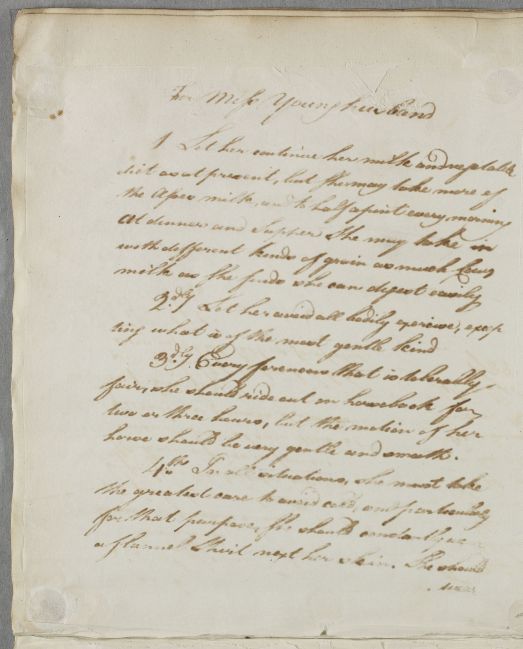 For Miss Younghusband
1 Let her continue her milk and vegetable
diet as at present, but she may take more of
the Asses milk, and to half a pint every morning
At dinner and Supper She may take in
with different kinds of grain as much Cows
milk as she finds she can digest easily
2dly Let her avoid all bodily exercise, excep
ting what is of the most gentle kind
3dly Every forenoon that is tolerably
fair, she should ride out on horseback for
two or three hours, but the motion of her
horse should be very gentle and smooth.
4tho In all situations, she must take
the greatest care to avoid cold, and particularly
for that purpose, she should constantly
a flannel Shirt next her skin. She should